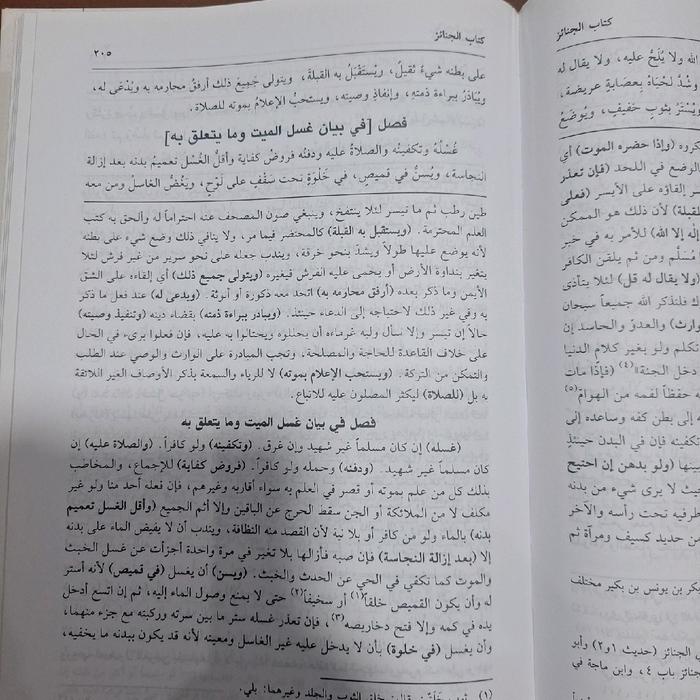 كتاب الجنائز
٢٠٥
على بطنه شيءٌ ثقيلٌ، ويُستَقْبَلُ به القبلةَ، ويتولى جَمِيعَ ذلك أرفقُ محارمه به ويُدْعَى له،
ويُبَادَرُ ببراءة ذمتهِ، وإنفاذِ وصيته، ويستحبُّ الإعلامُ بموته للصلاة.
فصل [في بيان غسل الميت وما يتعلق به]
غُسْلُهُ وتكفينُه والصلاةُ عليه ودفنُه فروضُ كفاية وأقلُّ الغُسْل تعميمُ بدنه بعد إزالة
النجاسة، ويُسنُّ في قميصٍ، في خَلْوَةٍ تحت سَقْفٍ على لَوْحٍ، ويَغُضُّ الغاسلُ ومن معه
طين رطب ثم ما تيسر لئلا ينتفخ، وينبغي صون المصحف عنه احتراماً له وألحق به كتب
العلم المحترمة. (ويستقبل به القبلة) كالمحتضر فيما مر، ولا ينافي ذلك وضع شيء على بطنه
لأنه يوضع عليها طولاً ويشدّ بنحو خرقة، ويندب جعله على نحو سرير من غير فرش لئلا
يتغير بنداوة الأرض أو يحمى عليه الفرش فيغيره (ويتولى جميع ذلك) أي إلقاءه على الشق
الأيمن وما ذكر بعده (أرفق محارمه به) اتحد معه ذكورة أو أنوثة. (ويدعى له) عند فعل ما ذكر
به وفي غير ذلك لاحتياجه إلى الدعاء حينئذ. (ويبادر ببراءة ذمته) بقضاء دينه (وتنفيذ وصيته)
حالاً إن تيسر وإلا سأل وليه غرماءه أن يحللوه ويحتالوا به عليه، فإن فعلوا برىء في الحال
على خلاف القاعدة للحاجة والمصلحة، وتجب المبادرة على الوارث والوصي عند الطلب
والتمكن من التركة. (ويستحب الإعلام بموته) لا للرياء والسمعة بذكر الأوصاف الغير اللائقة
به بل (للصلاة) ليكثر المصلون عليه للاتباع.
فصل في بيان غسل الميت وما يتعلق به
(غسله) إن كان مسلماً غير شهيد وإن غرق. (وتكفينه) ولو كافراً. (والصلاة عليه) إن
كان مسلماً غير شهيد. (ودفنه) وحمله ولو كافراً. (فروض كفاية) للإجماع، والمخاطب
بذلك كل من علم بموته أو قصر في العلم به سواء أقاربه وغيرهم، فإن فعله أحد منا ولو غير
مكلف لا من الملائكة أو الجن سقط الحرج عن الباقين وإلا أثم الجميع (وأقل الغسل تعميم
بدنه) بالماء ولو من كافر أو بلا نية لأن القصد منه النظافة، ويندب أن لا يفيض الماء على بدنه
إلا (بعد إزالة النجاسة) فإن صبه فأزالها بلا تغير في مرة واحدة أجزأت عن غسل الخبث
والموت كما تكفي في الحي عن الحدث والخبث. (ويسن) أن يغسل (في قميص) لأنه أستر
له وأن يكون القميص خلقاً(١) أو سخيفاً(٢) حتى لا يمنع وصول الماء إليه، ثم إن اتسع أدخل
يده في كمه وإلا فتح دخاريصه(٣)، فإن تعذر غسله ستر ما بين سرته وركبته مع جزء منهما،
وأن يغسل (في خلوة) بأن لا يدخل عليه غير الغاسل ومعينه لأنه قد يكون ببدنه ما يخفيه،
كتاب الجنائز
الله ولا يُلَحُّ عليه، ولا يقال له
وشُدَّ لَحْيَاهُ بِعصَابةٍ عريضة،
ويُسْتَرُ بثوبٍ خفيفٍ، ويُوضَعُ
(وإذا حضره الموت) أي
الوضع في اللحد (فإن تعذر
إلقاؤه على الأيسر (فعلى
القبلة) لأن ذلك هو الممكن
إله إلا الله) للأمر به في خبر
مُسَلَّم ومن ثم يلقن الكافر
(ولا يقال له قل) لئلا يتأذى
فلنذكر الله جميعاً سبحان
والعدوّ والحاسد إن
تكلم ولو بغير كلام الدنيا
دخل الجنة»(٤) (فإذا مات
حفظاً لفمه من الهوامّ(٥)
إلى بطن كفه وساعده إلى
تكفينه فإن في البدن حينئذ
(ولو بدهن إن احتيج
لا يرى شيء من بدنه
طرفيه تحت رأسه والآخر
من حديد كسيف ومرآة ثم
بكر بن يونس بن بكير مختلف
الجنائز (حديث ١ و٢) وأبو
جنائز باب ٤، وابن ماجة في